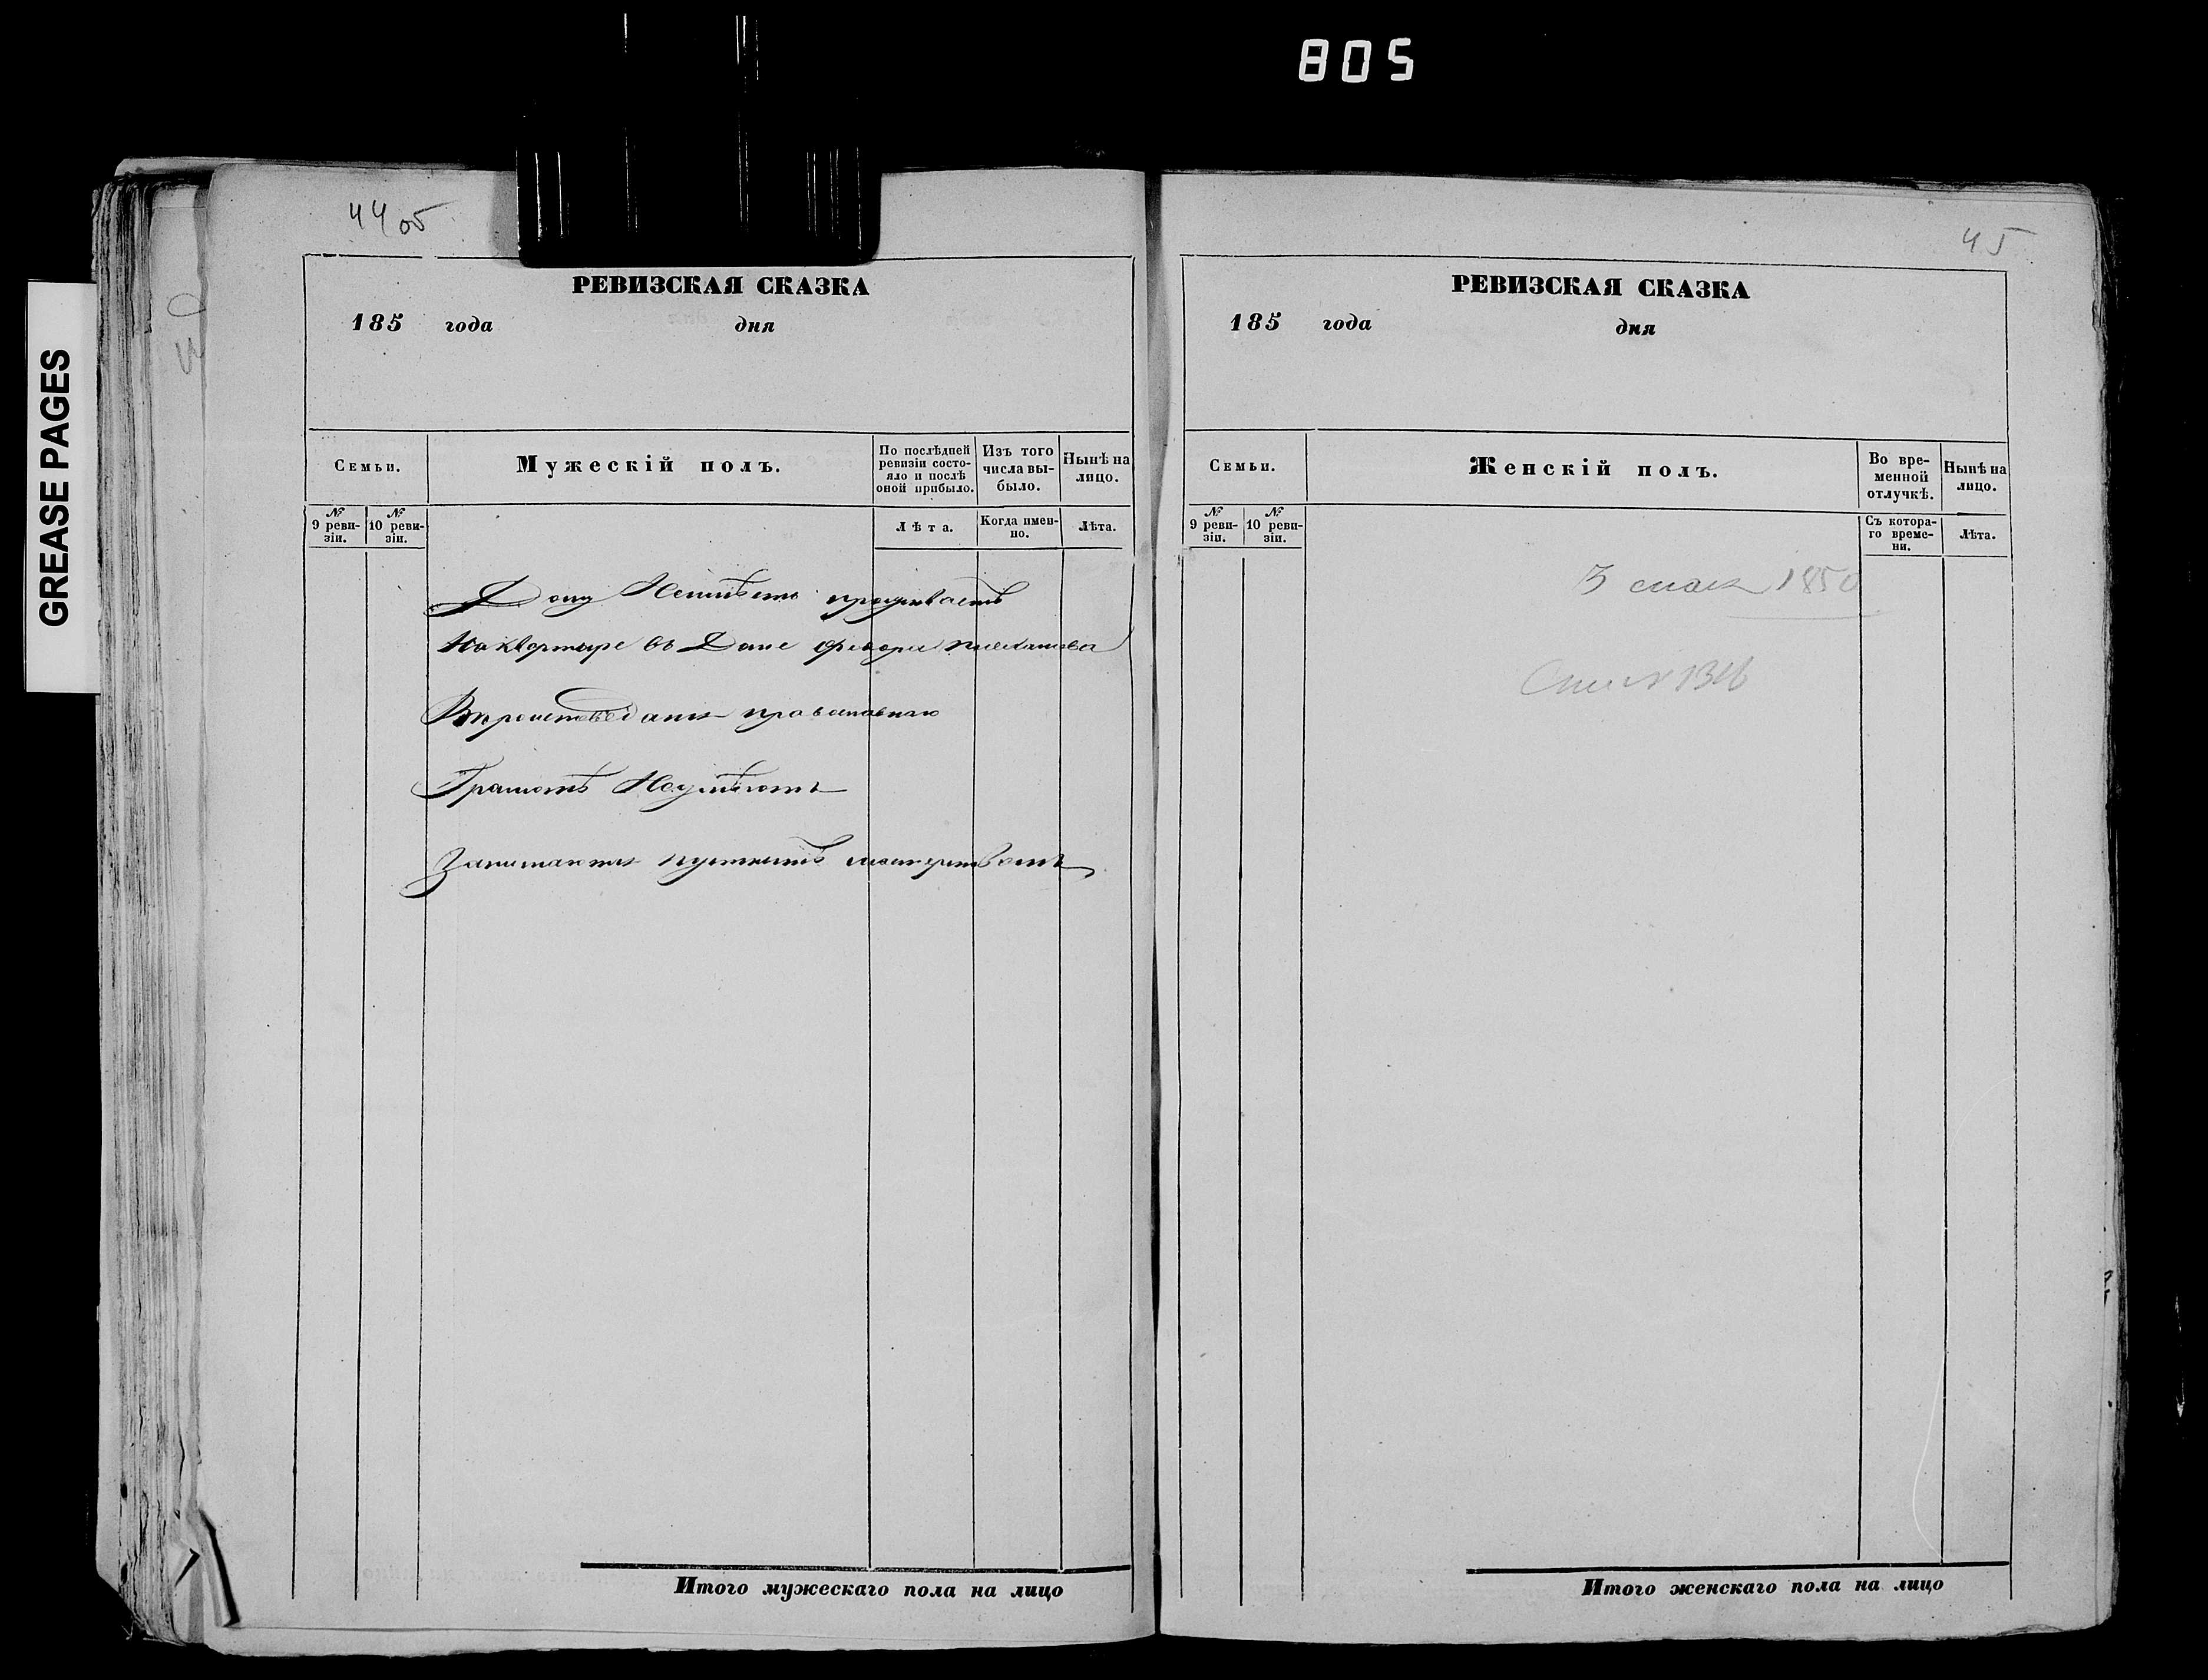 805
GREASE PAGES
44 об
РЕВИЗСКАЯ СКАЗКА
185 года дня
Семьи.
Мужескій полъ.
По послѣдней ревизіи состояло и послѣ оной прибыло.
Изъ того числа выбыло.
Нынѣ на лицо.
№ 9 ревизіи.
№ 10 ревизіи.
Лѣта.
Когда именно.
Лѣта.
Дому Неимѣетъ проживаетъ
На квартире въ Доме Федора
Вероисповеданія православнаго
Грамотѣ Неумѣютъ
Занимаются мастерствомъ
Итого мужескаго пола на лицо
45
РЕВИЗСКАЯ СКАЗКА
185 года дня
Семьи.
Женскій полъ.
Во временной отлучкѣ.
Нынѣ на лицо.
№ 9 ревизіи.
№ 10 ревизіи.
Съ котораго времени.
Лѣта.
3 1850
Итого женскаго пола на лицо